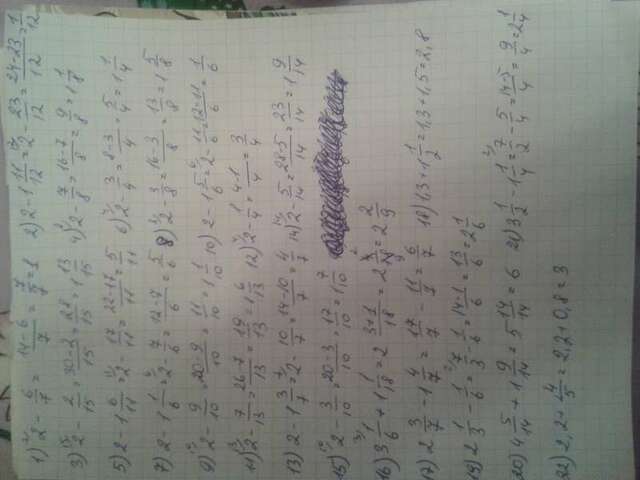 1) 2 - 6/7 = 14-6/7 = 7/7 = 1 2) 2 - 1 11/12 = 2 - 23/12 = 24-23/12 = 1/12
3) 2 - 2/15 = 30-2/15 = 28/15 = 1 13/15 4) 2 - 7/8 = 16-7/8 = 9/8 = 1 1/8
5) 2 - 1 6/11 = 2 - 17/11 = 22-17/11 = 5/11 6) 2 - 3/4 = 8-3/4 = 5/4 = 1 1/4
7) 2 - 1 1/6 = 2 - 7/6 = 12-7/6 = 5/6 8) 2 - 3/8 = 16-3/8 = 13/8 = 1 5/8
9) 2 - 9/10 = 20-9/10 = 11/10 = 1 1/10 10) 2 - 1 5/6 = 2 - 11/6 = 12-11/6 = 1/6
11) 2 - 7/13 = 26-7/13 = 19/13 = 1 6/13 12) 2 - 1/4 = 4-1/4 = 3/4
13) 2 - 1 3/7 = 2 - 10/7 = 14-10/7 = 4/7 14) 2 - 5/14 = 28-5/14 = 23/14 = 1 9/14
15) 2 - 3/10 = 20-3/10 = 17/10 = 1 7/10
16) 3 1/6 + 1 1/18 = 2 3+1/18 = 2 2/9
17) 2 3/7 - 1 4/7 = 17/7 - 11/7 = 6/7 18) 1,3 + 1 1/2 = 1,3 + 1,5 = 2,8
19) 2 1/3 - 1/6 = 7/3 - 1/6 = 14-1/6 = 13/6 = 2 1/6
20) 4 5/14 + 1 9/14 = 5 14/14 = 6 21) 3 1/2 - 1 1/4 = 7/2 - 5/4 = 14-5/4 = 9/4 = 2 1/4
22) 2,2 + 4/5 = 2,2 + 0,8 = 3